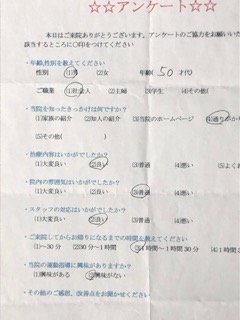 ☆☆アンケート☆☆
本日はご来院ありがとうございます。アンケートのご協力をお願いいた
該当するところに○印をつけてください
・年齢,性別を教えてください
性別 (1)男 (2)女 年齢( 50 才代)
ご職業 (1)社会人 (2)主婦 (3)学生 (4)その他(
・当院を知ったきっかけは何ですか?
(1)家族の紹介 (2)知人の紹介 (3)当院のホームページ (4)通りがか
(5)その他( )
・治療内容はいかがでしたか?
(1)大変良い (2)良い (3)普通 (4)悪い (5)よくお
・院内の雰囲気はいかがでしたか?
(1)大変良い (2)良い (3)普通 (4)悪い
・スタッフの対応はいかがでしたか?
(1)大変良い (2)良い (3)普通 (4)悪い
・ご来院してからお帰りになるまでの時間を教えてください
(1)~30分 (2)30分~1時間 (3)1時間~1時間30分 (4)1時間3
・当院の運動指導に興味がありますか?
(1)興味がある (2)興味がない
・その他のご感想、改善点をお聞かせください